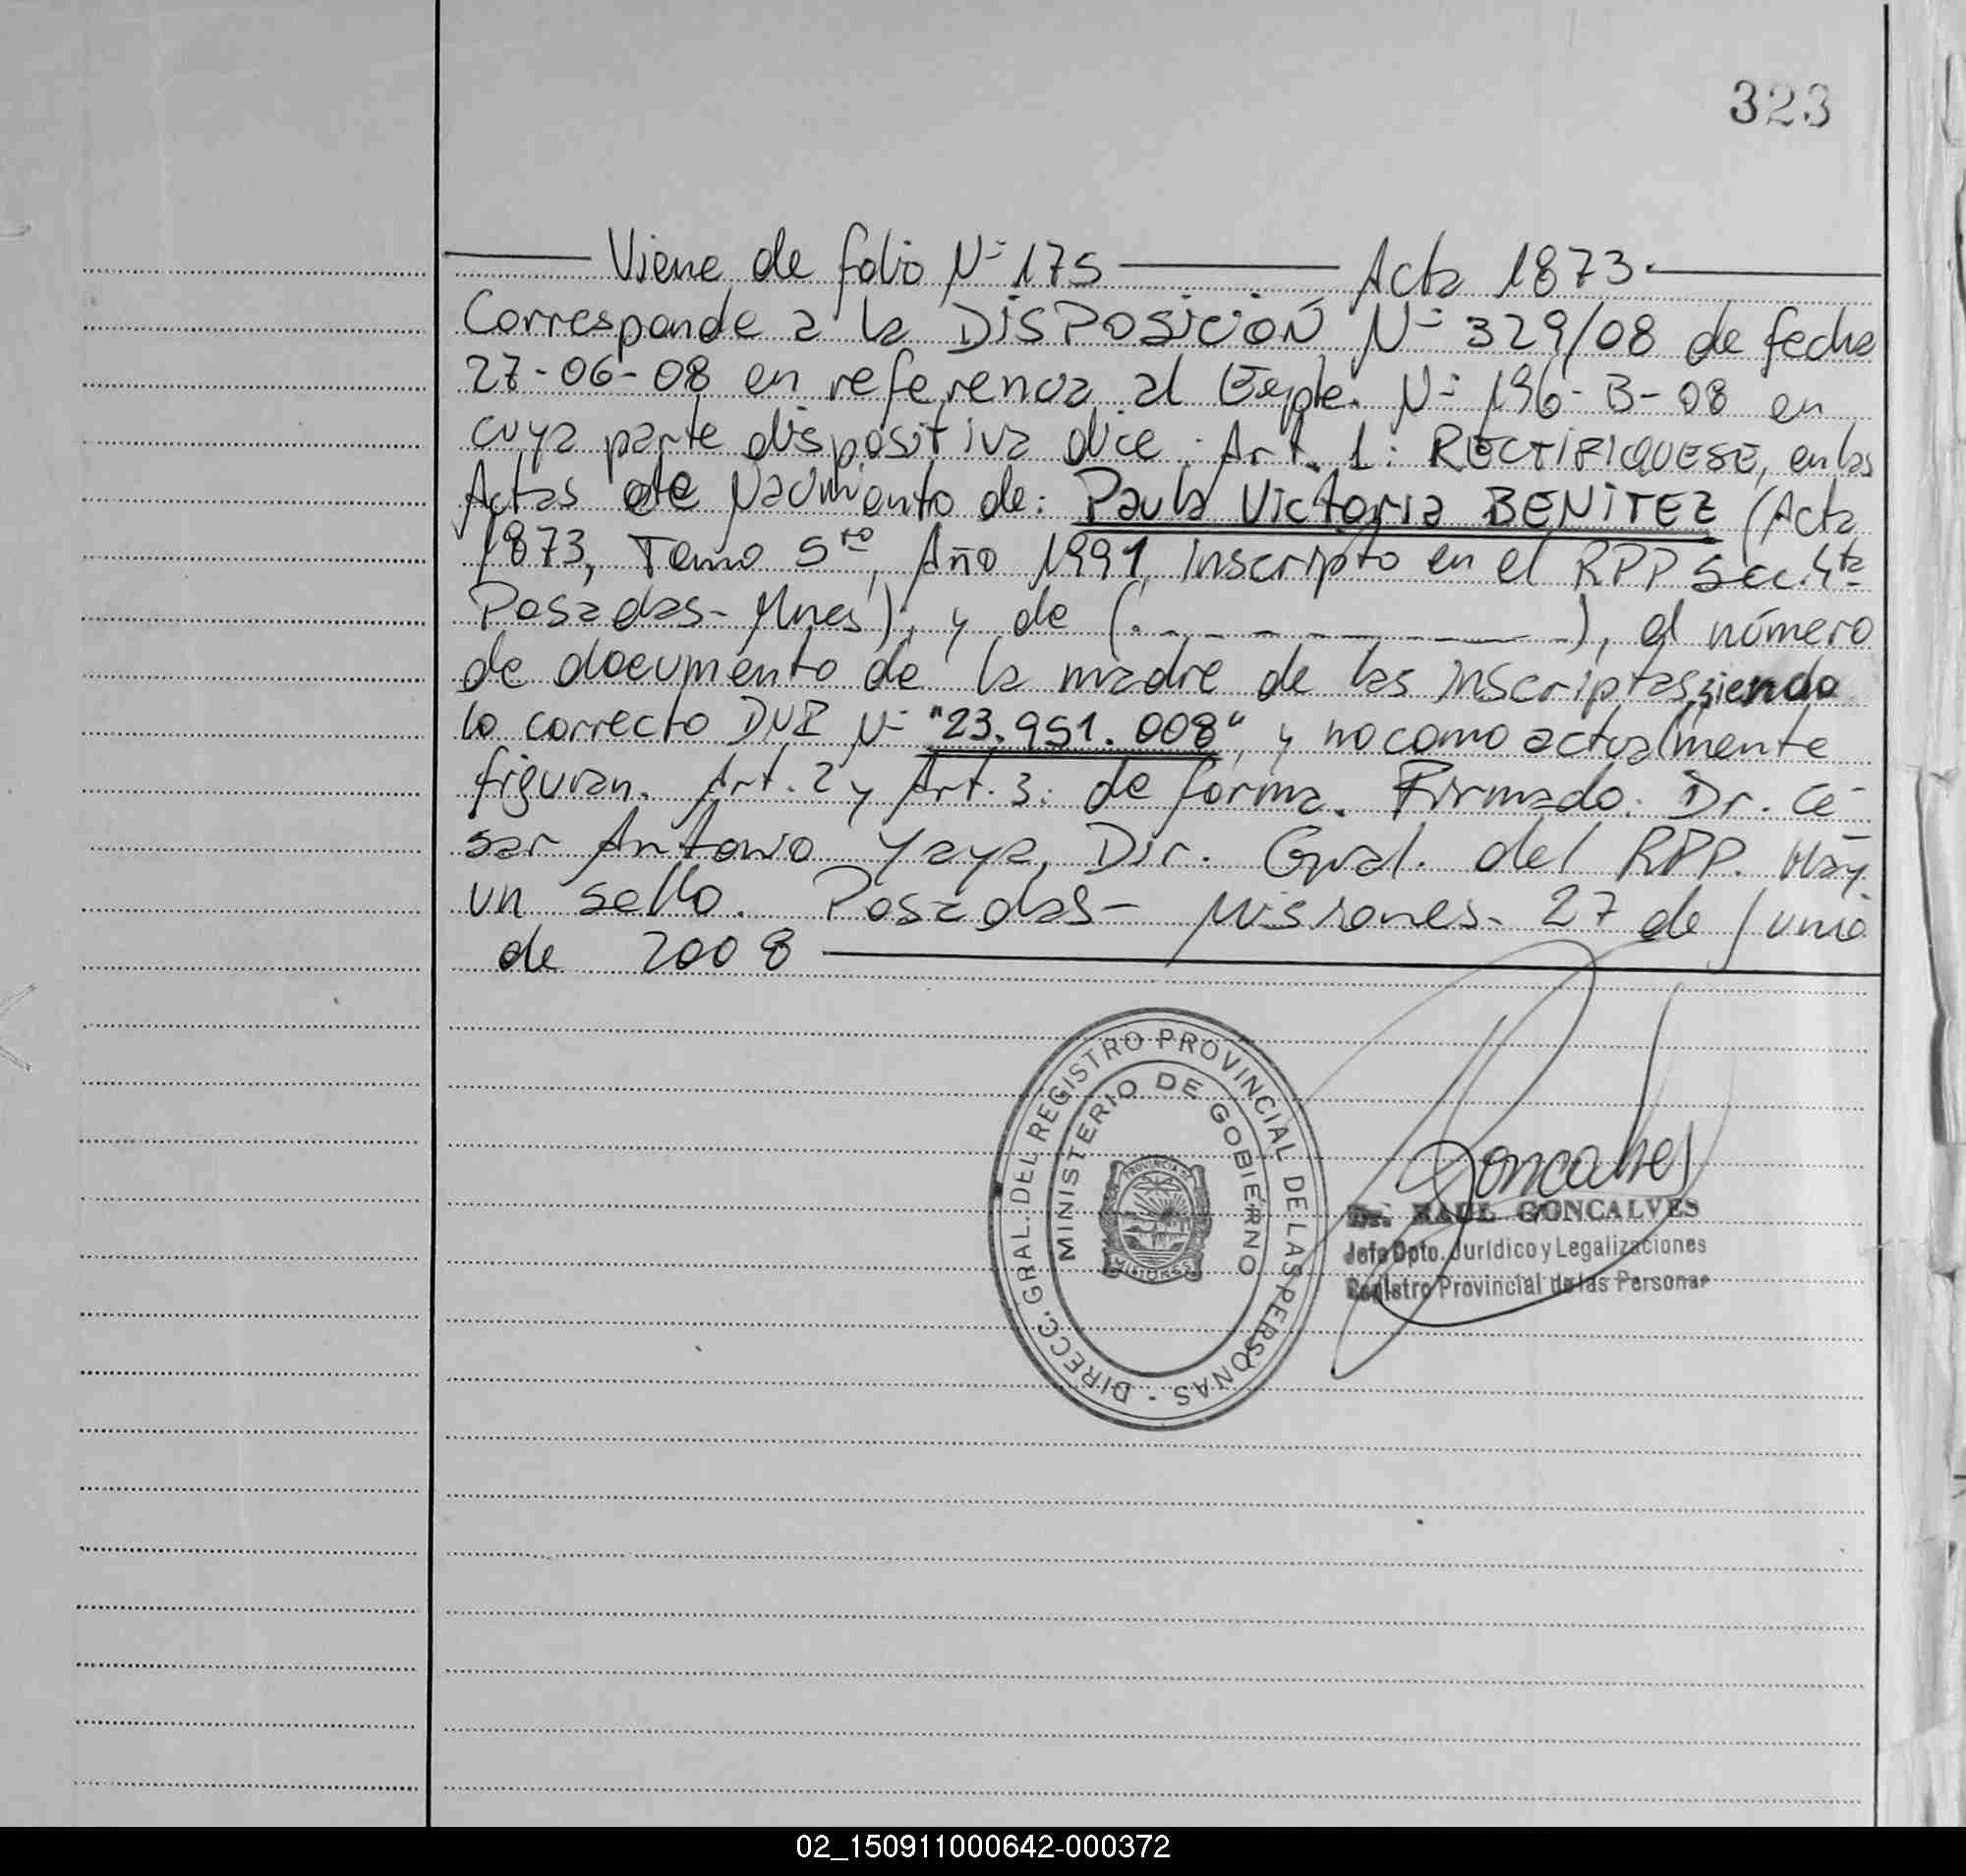 323
Viene de folio Nº 175 Acta 1873.
Corresponde a la DISPOSICIÓN Nº 329/08 de fecha
27-06-08 en referencia al Expte. Nº 196-B-08 en
cuya parte dispositiva dice: Art. 1: RECTIFIQUESE, en las
Actas de Nacimiento de: Paula Victoria BENITEZ (Acta
1873, Tomo 5to, Año 1991, inscripto en el RPP Sec. 4ta
Posadas-Mnes), y de (. - - - - - - - - -), el número
de documento de la madre de las inscriptas, siendo
lo correcto DNI Nº "23.951.008", y no como actualmente
figuran. Art. 2 y Art. 3: de forma. Firmado: Dr. Cé-
sar Antonio Yaya, Dir. Gral. del RPP. Hay
un sello. Posadas- Misiones- 27 de Junio
de 2008
DIRECC. GRAL. DEL REGISTRO PROVINCIAL DE LAS PERSONAS -
MINISTERIO DE GOBIERNO
PROVINCIA DE
MISIONES
Goncalves
Dr. RAUL GONCALVES
Jefe Dpto. Jurídico y Legalizaciones
Registro Provincial de las Personas
02_150911000642-000372